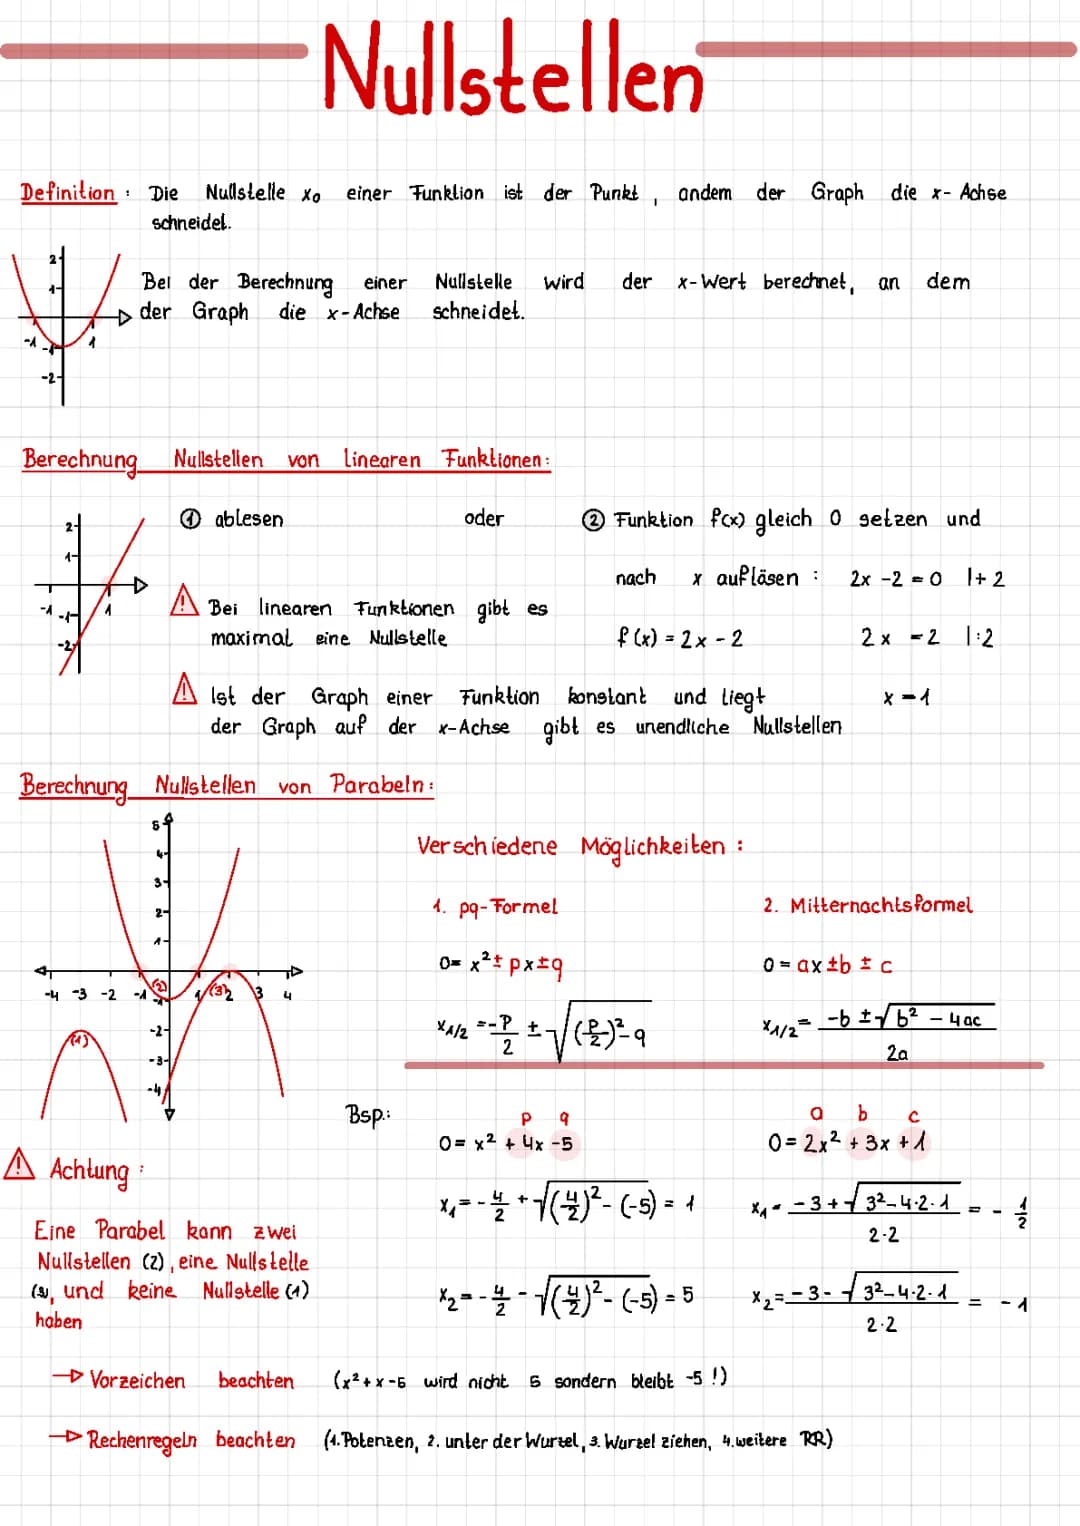 Nullstellen
Definition : Die Nullstelle x₀ einer Funktion ist der Punkt , andem der Graph die x- Achse
schneidet.
2
1
-1
-1
1
-2
Bei der Berechnung einer Nullstelle wird der x-Wert berechnet, an dem
der Graph die x-Achse schneidet.
Berechnung Nullstellen von linearen Funktionen:
2
1
-1
-1
1
-2
① ablesen oder ② Funktion f(x) gleich 0 setzen und
nach x auflösen : 2x -2 = 0 |+ 2
⚠ Bei linearen Funktionen gibt es
maximal eine Nullstelle
f(x) = 2x - 2 2x = 2 |:2
⚠ Ist der Graph einer Funktion konstant und liegt x = 1
der Graph auf der x-Achse gibt es unendliche Nullstellen
Berechnung Nullstellen von Parabeln:
5
4
3
2
1
-4 -3 -2 -1 (2) 1 (3) 2 3 4
-1
-2
(1)
-3
-4
Verschiedene Möglichkeiten :
1. pq-Formel 2. Mitternachtsformel
0= x² ± px ± q 0 = ax ± b ± c
x₁/₂ = -p/2 ± √((p/2)² - q) x₁/₂ = (-b ± √(b² - 4ac)) / 2a
Bsp.: p q a b c
0= x² + 4x -5 0 = 2x² + 3x + 1
⚠ Achtung :
x₁ = - 4/2 + √((4/2)² - (-5)) = 1 x₁ = (-3 + √(3² - 4·2·1)) / 2·2 = - 1/2
Eine Parabel kann zwei
Nullstellen (2), eine Nullstelle
(3), und keine Nullstelle (1)
haben
x₂ = - 4/2 - √((4/2)² - (-5)) = 5 x₂ = (-3 - √(3² - 4·2·1)) / 2·2 = - 1
→ Vorzeichen beachten (x² + x -5 wird nicht 5 sondern bleibt -5 !)
→ Rechenregeln beachten (1. Potenzen, 2. unter der Wurzel, 3. Wurzel ziehen, 4. weitere RR)